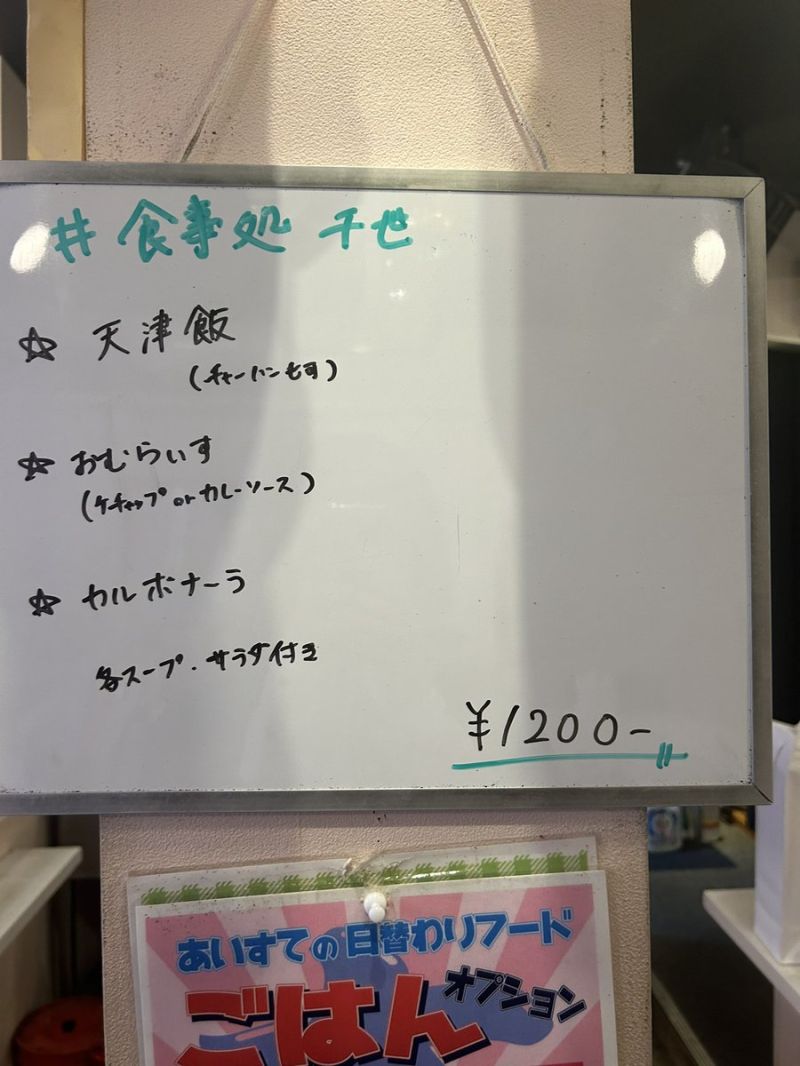 # 食事処 千世
☆ 天津飯
(チャーハン也可)
☆ おむらいす
(ケチャップ or カレーソース)
☆ カルボナーラ
各スープ・サラダ付き
¥1200-
あいすての日替わりフード
ごはん
オプション